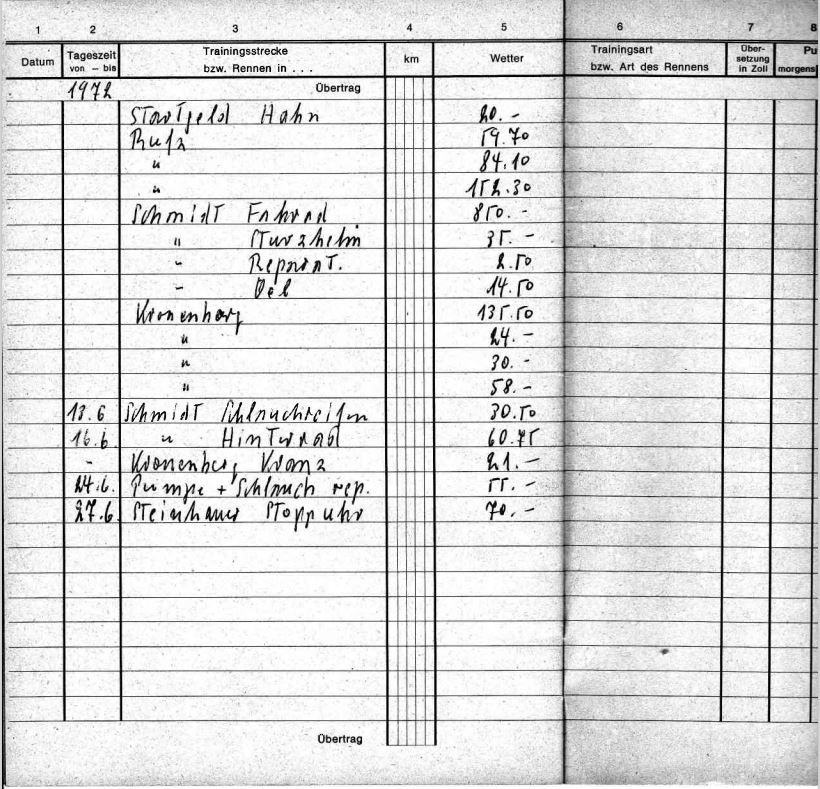 1 2 3 4 5 6 7 8
Datum Tageszeit von – bis Trainingsstrecke bzw. Rennen in . . . km Wetter Trainingsart bzw. Art des Rennens Über-setzung in Zoll Pu morgens
1972 Übertrag
Startgeld Hahn 20.-
59.70
" 84.10
" 152.30
Schmidt Fahrad 850.-
" Sturzhelm 35.-
- Reparat. 2.50
- Oel 14.50
Kronenberg 135.50
" 24.-
" 30.-
" 58.-
13.6 Schmidt Schlauchreifen 30.50
16.6. " Hinterrad 60.75
- Kronenberg Kranz 21.-
24.6. Pumpe + Schlauch rep. 55.-
27.6. Steinhauer Stoppuhr 70.-
Übertrag